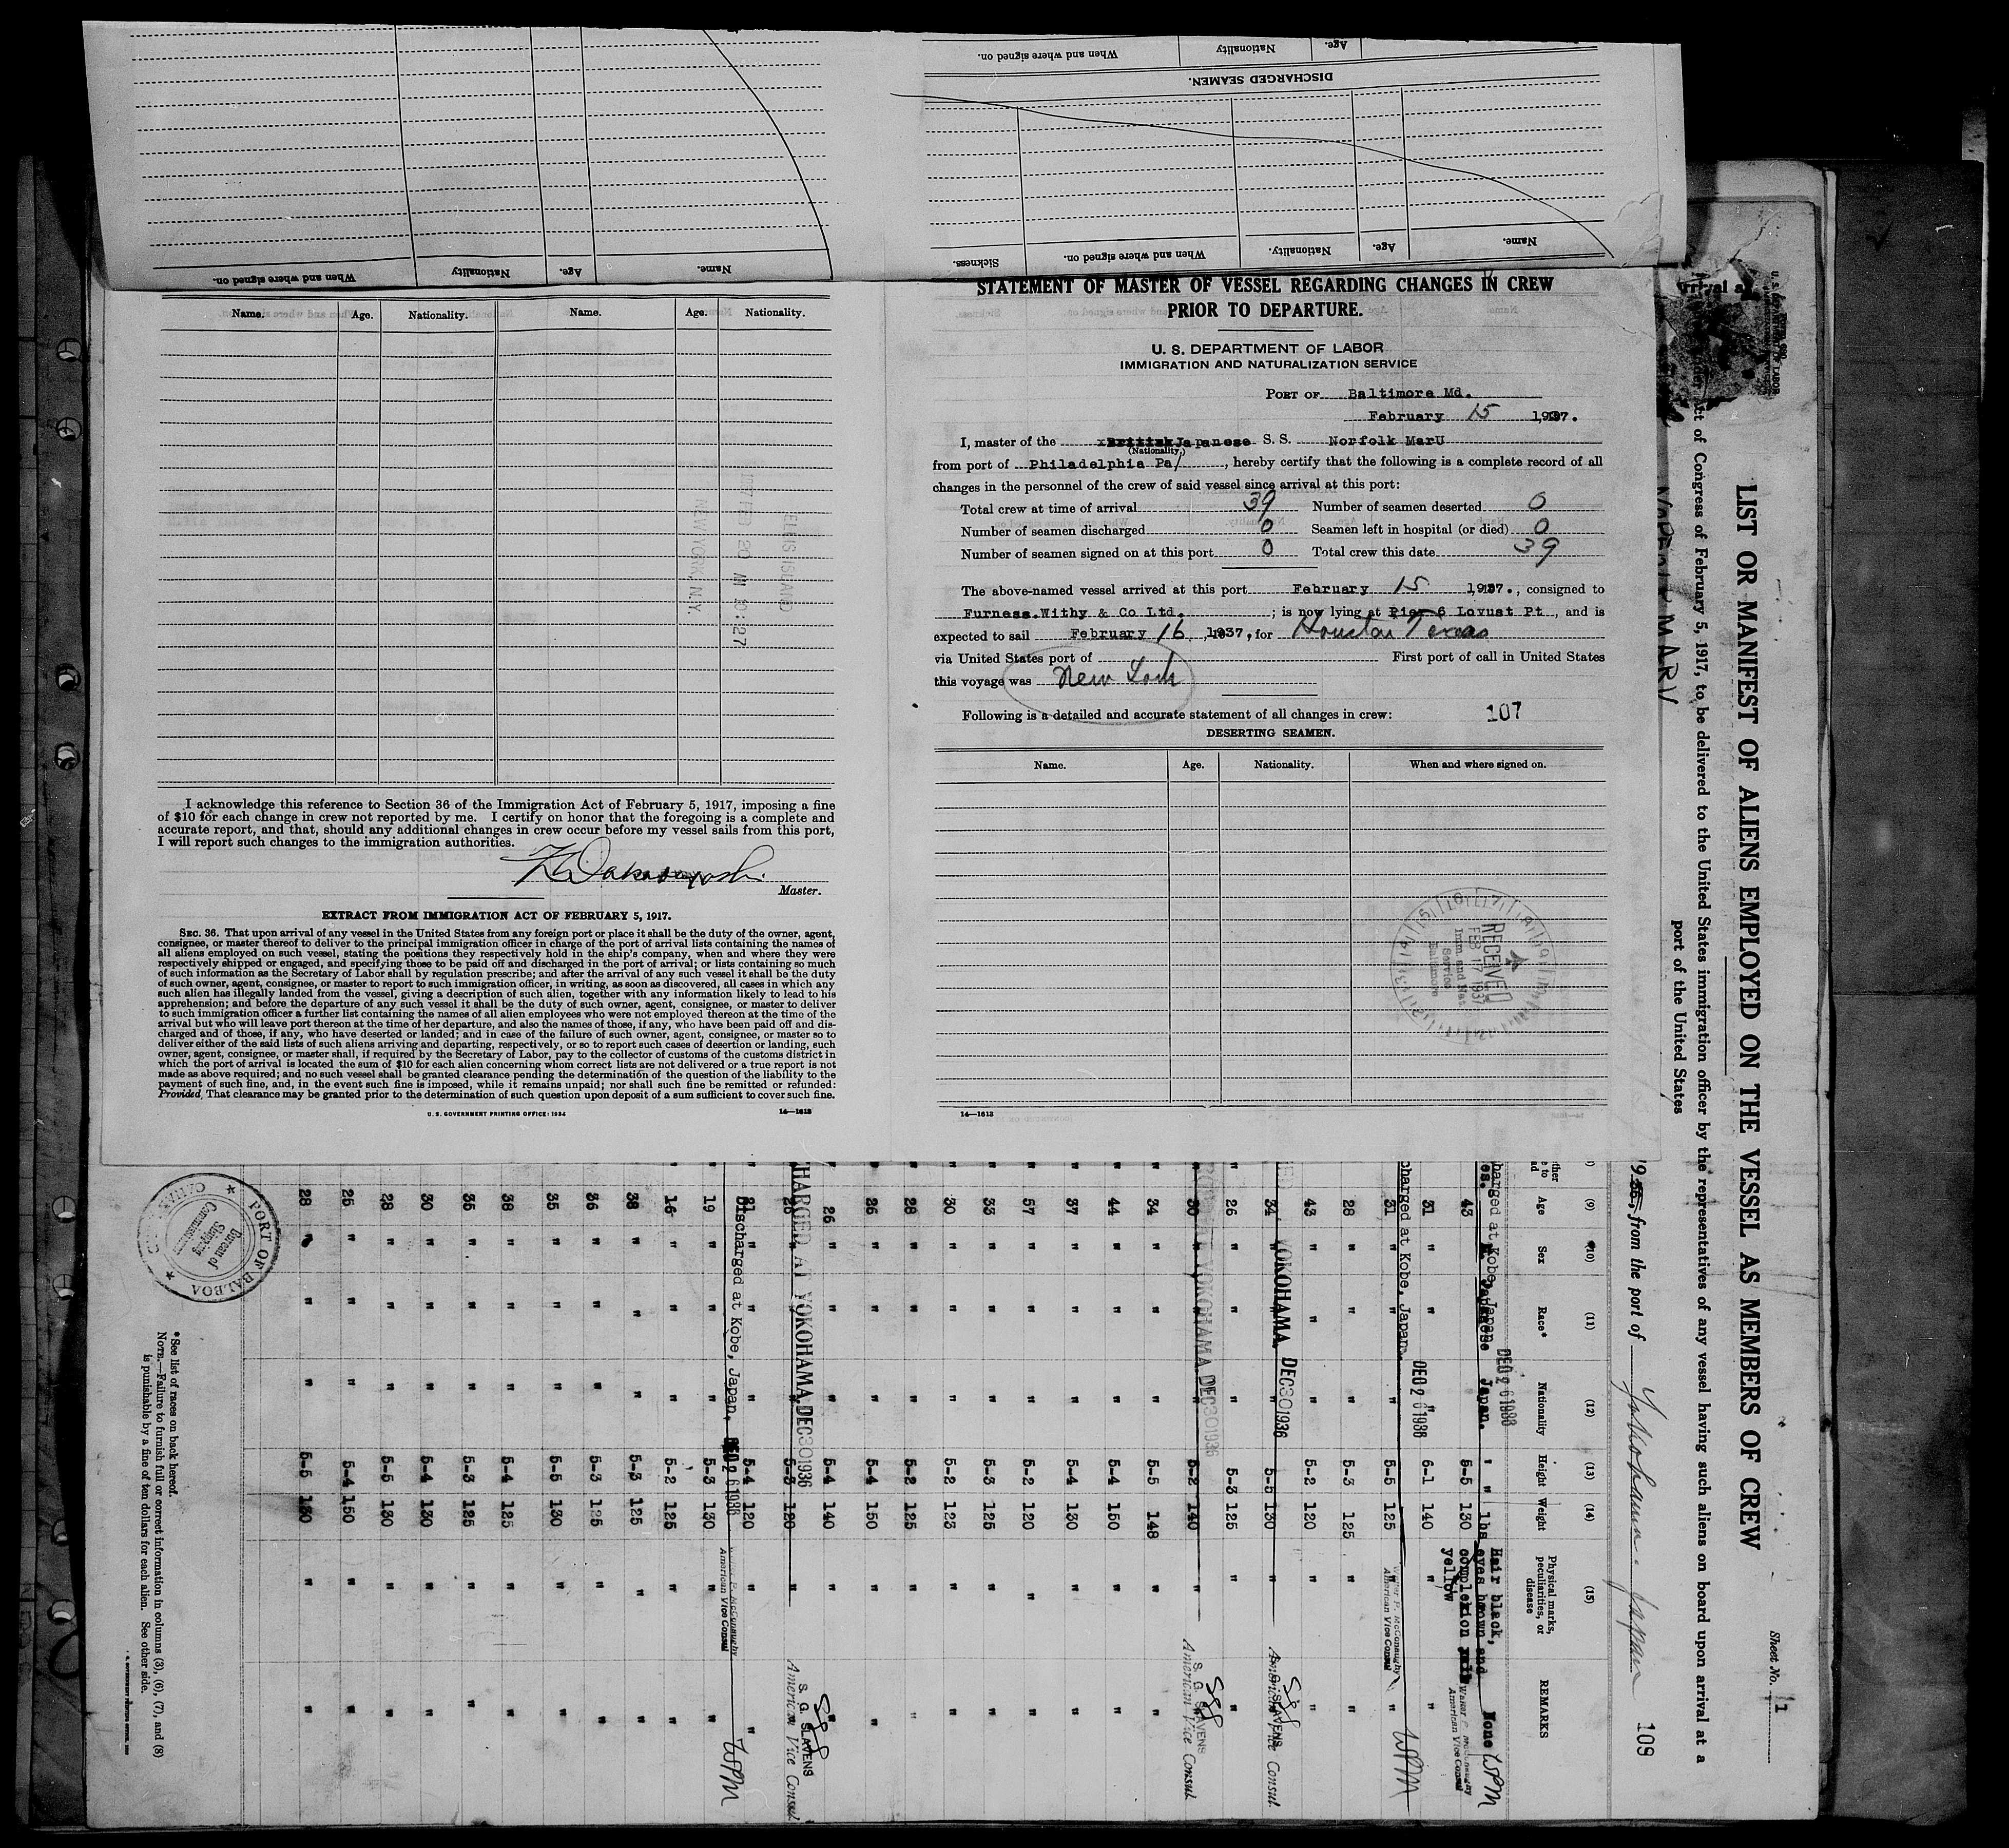 When and where signed on.
Nationality
Age.
Name.
When and where signed on.
Nationality
Age.
DISCHARGED SEAMEN.
Sickness.
When and where signed on.
Nationality.
Age.
Name.
Name.
Age.
Nationality.
Name.
Age.
Nationality.
ELLIS ISLAND
FEB 20 AM 10:27
NEW YORK, N.Y.
I acknowledge this reference to Section 36 of the Immigration Act of February 5, 1917, imposing a fine
of $10 for each change in crew not reported by me. I certify on honor that the foregoing is a complete and
accurate report, and that, should any additional changes in crew occur before my vessel sails from this port,
I will report such changes to the immigration authorities.
Master.
EXTRACT FROM IMMIGRATION ACT OF FEBRUARY 5, 1917.
SEC. 36. That upon arrival of any vessel in the United States from any foreign port or place it shall be the duty of the owner, agent,
consignee, or master thereof to deliver to the principal immigration officer in charge of the port of arrival lists containing the names of
all aliens employed on such vessel, stating the positions they respectively hold in the ship's company, when and where they were
respectively shipped or engaged, and specifying those to be paid off and discharged in the port of arrival; or lists containing so much
of such information as the Secretary of Labor shall by regulation prescribe; and after the arrival of any such vessel it shall be the duty
of such owner, agent, consignee, or master to report to such immigration officer, in writing, as soon as discovered, all cases in which any
such alien has illegally landed from the vessel, giving a description of such alien, together with any information likely to lead to his
apprehension; and before the departure of any such vessel it shall be the duty of such owner, agent, consignee, or master to deliver
to such immigration officer a further list containing the names of all alien employees who were not employed thereon at the time of the
arrival but who will leave port thereon at the time of her departure, and also the names of those, if any, who have been paid off and dis-
charged and of those, if any, who have deserted or landed; and in case of the failure of such owner, agent, consignee, or master so to
deliver either of the said lists of such aliens arriving and departing, respectively, or so to report such cases of desertion or landing, such
owner, agent, consignee, or master shall, if required by the Secretary of Labor, pay to the collector of customs of the customs district in
which the port of arrival is located the sum of $10 for each alien concerning whom correct lists are not delivered or a true report is not
made as above required; and no such vessel shall be granted clearance pending the determination of the question of the liability to the
payment of such fine, and, in the event such fine is imposed, while it remains unpaid; nor shall such fine be remitted or refunded:
Provided, That clearance may be granted prior to the determination of such question upon deposit of a sum sufficient to cover such fine.
U. S. GOVERNMENT PRINTING OFFICE: 1934
14—1613
STATEMENT OF MASTER OF VESSEL REGARDING CHANGES IN CREW
PRIOR TO DEPARTURE.
U. S. DEPARTMENT OF LABOR
IMMIGRATION AND NATURALIZATION SERVICE
PORT OF Baltimore Md.
February 15 1937.
I, master of the Japanese S. S. Norfolk MarU
(Nationality.)
from port of Philadelphia Pa/, hereby certify that the following is a complete record of all
changes in the personnel of the crew of said vessel since arrival at this port:
Total crew at time of arrival 39 Number of seamen deserted 0
Number of seamen discharged 0 Seamen left in hospital (or died) 0
Number of seamen signed on at this port 0 Total crew this date 39
The above-named vessel arrived at this port February 15 1937., consigned to
Furness.Withy & Co Ltd. ; is now lying at Pier 6 Lovust Pt, and is
expected to sail February 16, 1937, for Houston Texas
via United States port of First port of call in United States
this voyage was New York
Following is a detailed and accurate statement of all changes in crew: 107
DESERTING SEAMEN.
Name. Age. Nationality. When and where signed on.
RECEIVED
FEB 17 1937
Imm and Nat.
Service
Baltimore
14—1613
Sheet No. 1
LIST OR MANIFEST OF ALIENS EMPLOYED ON THE VESSEL AS MEMBERS OF CREW
Act of Congress of February 5, 1917, to be delivered to the United States immigration officer by the representatives of any vessel having such aliens on board upon arrival at a
port of the United States
NORFOLK MARU
from the port of Yokohama. Japan
109
(9) (10) (11) (12) (13) (14) (15)
Age Sex Race* Nationality Height Weight Physical marks, peculiarities, or disease REMARKS
charged at Kobe, Japan DEC 26 1936
43 M. Japanese Japan. 5-5 130 Hair black, eyes brown and complexion yellow None
WPM
American Vice Consul
31 " " " 6-1 140 " "
charged at Kobe, Japan. DEC 26 1936
31 " " 5-5 125 " "
Walter P. McConaughy
American Vice Consul
WPM
28 " " " 5-3 125 " "
43 " " " 5-2 120 " "
YOKOHAMA, DEC 30 1936
34 " " " 5-5 130 "
S. G. SLAVENS
American Vice Consul
26 " " " 5-3 125 " "
YOKOHAMA, DEC 30 1936
30 " " " 5-2 140 "
S. G. SLAVENS
American Vice Consul
34 " " " 5-5 148 " "
44 " " " 5-4 150 " "
37 " " " 5-4 130 " "
57 " " " 5-2 120 " "
33 " " " 5-3 125 " "
30 " " " 5-2 123 " "
28 " " " 5-2 125 " "
26 " " " 5-4 150 " "
26 " " " 5-4 140 " "
CHARGED AT YOKOHAMA, DEC 30 1936
5-3 120 "
S. G. SLAVENS
American Vice Consul
21 " " " 5-4 120 " "
Discharged at Kobe, Japan, DEC 26 1936
Walter P. McConaughy
American Vice Consul
WPM
19 " " " 5-3 130 " "
16 " " " 5-2 125 " "
38 " " " 5-3 125 " "
36 " " " 5-3 125 " "
35 " " " 5-5 130 " "
38 " " " 5-4 125 " "
35 " " " 5-3 125 " "
30 " " " 5-4 130 " "
28 " " " 5-5 130 " "
25 " " " 5-4 150 " "
28 " " " 5-5 130 " "
PORT OF BALBOA
Bureau of
Shipping
Commissioner
*See list of races on back hereof.
NOTE.—Failure to furnish full or correct information in columns (3), (6), (7), and (8)
is punishable by a fine of ten dollars for each alien. See other side.